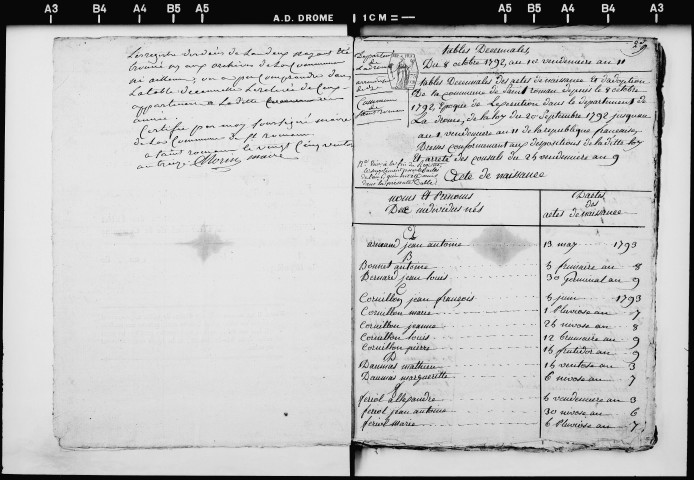 A3 B4 A4 B5 A5
A.D. DROME
1 CM
A5 B5 A4 B4 A3
Les registres des de L'an deux n'ayant été
trouvé aux archives de La Commune
on a pu Comprendre dans
La table decennalle Les de Ceux
appartenans a Ladite
année
Certifié par moy soussigné maire
de La Commune de St roman
a saint roman le vingt Cinq ventose
an treize Morin maire
Departement
de La Drome
arrondissement
de Die
Commune
de Saint roman
tables Decennales
Du 8 octobre 1792 au 1er vendemiaire an 11
tables Decennales des actes de naissance et d'adoption
De la commune de Saint roman depuis le 8 octobre
1792, Epoque de L'execution dans le departement de
La Drome, de la loy du 20 septembre 1792 jusqu'au
au 1 vendemiaire an 11 de la republique françaises,
Dressés conformement aux dispositions de laditte loy
et arreté des consuls du 25 vendemiaire an 9
Acte de naissance
noms et Prenoms
Des individus nés
Dattes
des
actes de naissance
A
arnaud jean antoine 13 may 1793
B
Bonnet antoine 5 frimaire an 8
Bernard jean louis 30 Germinal an 9
C
Cornillon jean françois 8 juin 1793
Cornillon marie 1 Pluviose an 7
Cornillon jeanne 26 nivose an 8
Cornillon louis 12 brumaire an 9
Cornillon pierre 15 fructidor an 9
D
Daumas mathieu 16 ventose an 3
Daumas marguerite 6 nivose an 7
F
feriol allexandre 6 vendemiaire an 3
feriol jean antoine 30 nivose an 6
feriol marie 6 Pluviose an 7